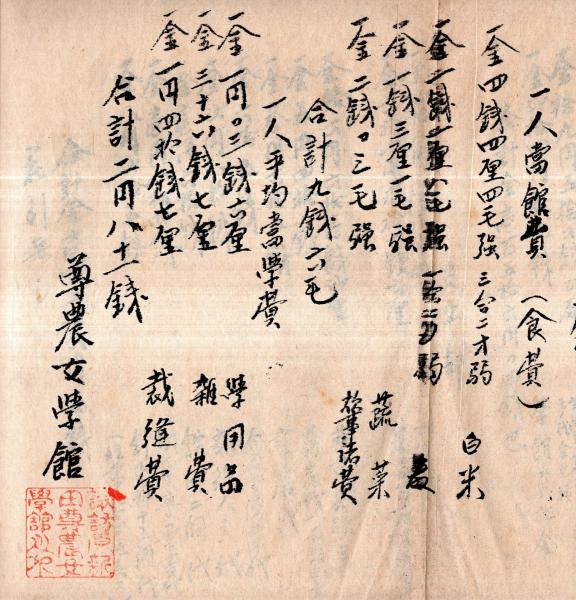 一人當館費（食費）
一金四錢四厘四毛强 三合二才弱 白米
一金二錢一厘 毛强 弱 麦
一金一錢三厘一毛强 蔬菜
一金二錢〇三毛强 炊事諸費
合計九錢六毛
一人平均當學費
一金一円〇三錢六厘 學用品
一金三十六錢七厘 雜費
一金一円四拾錢七厘 裁縫費
合計二円八十一錢
尊農女學館
諏訪
田尊農女
學館之印